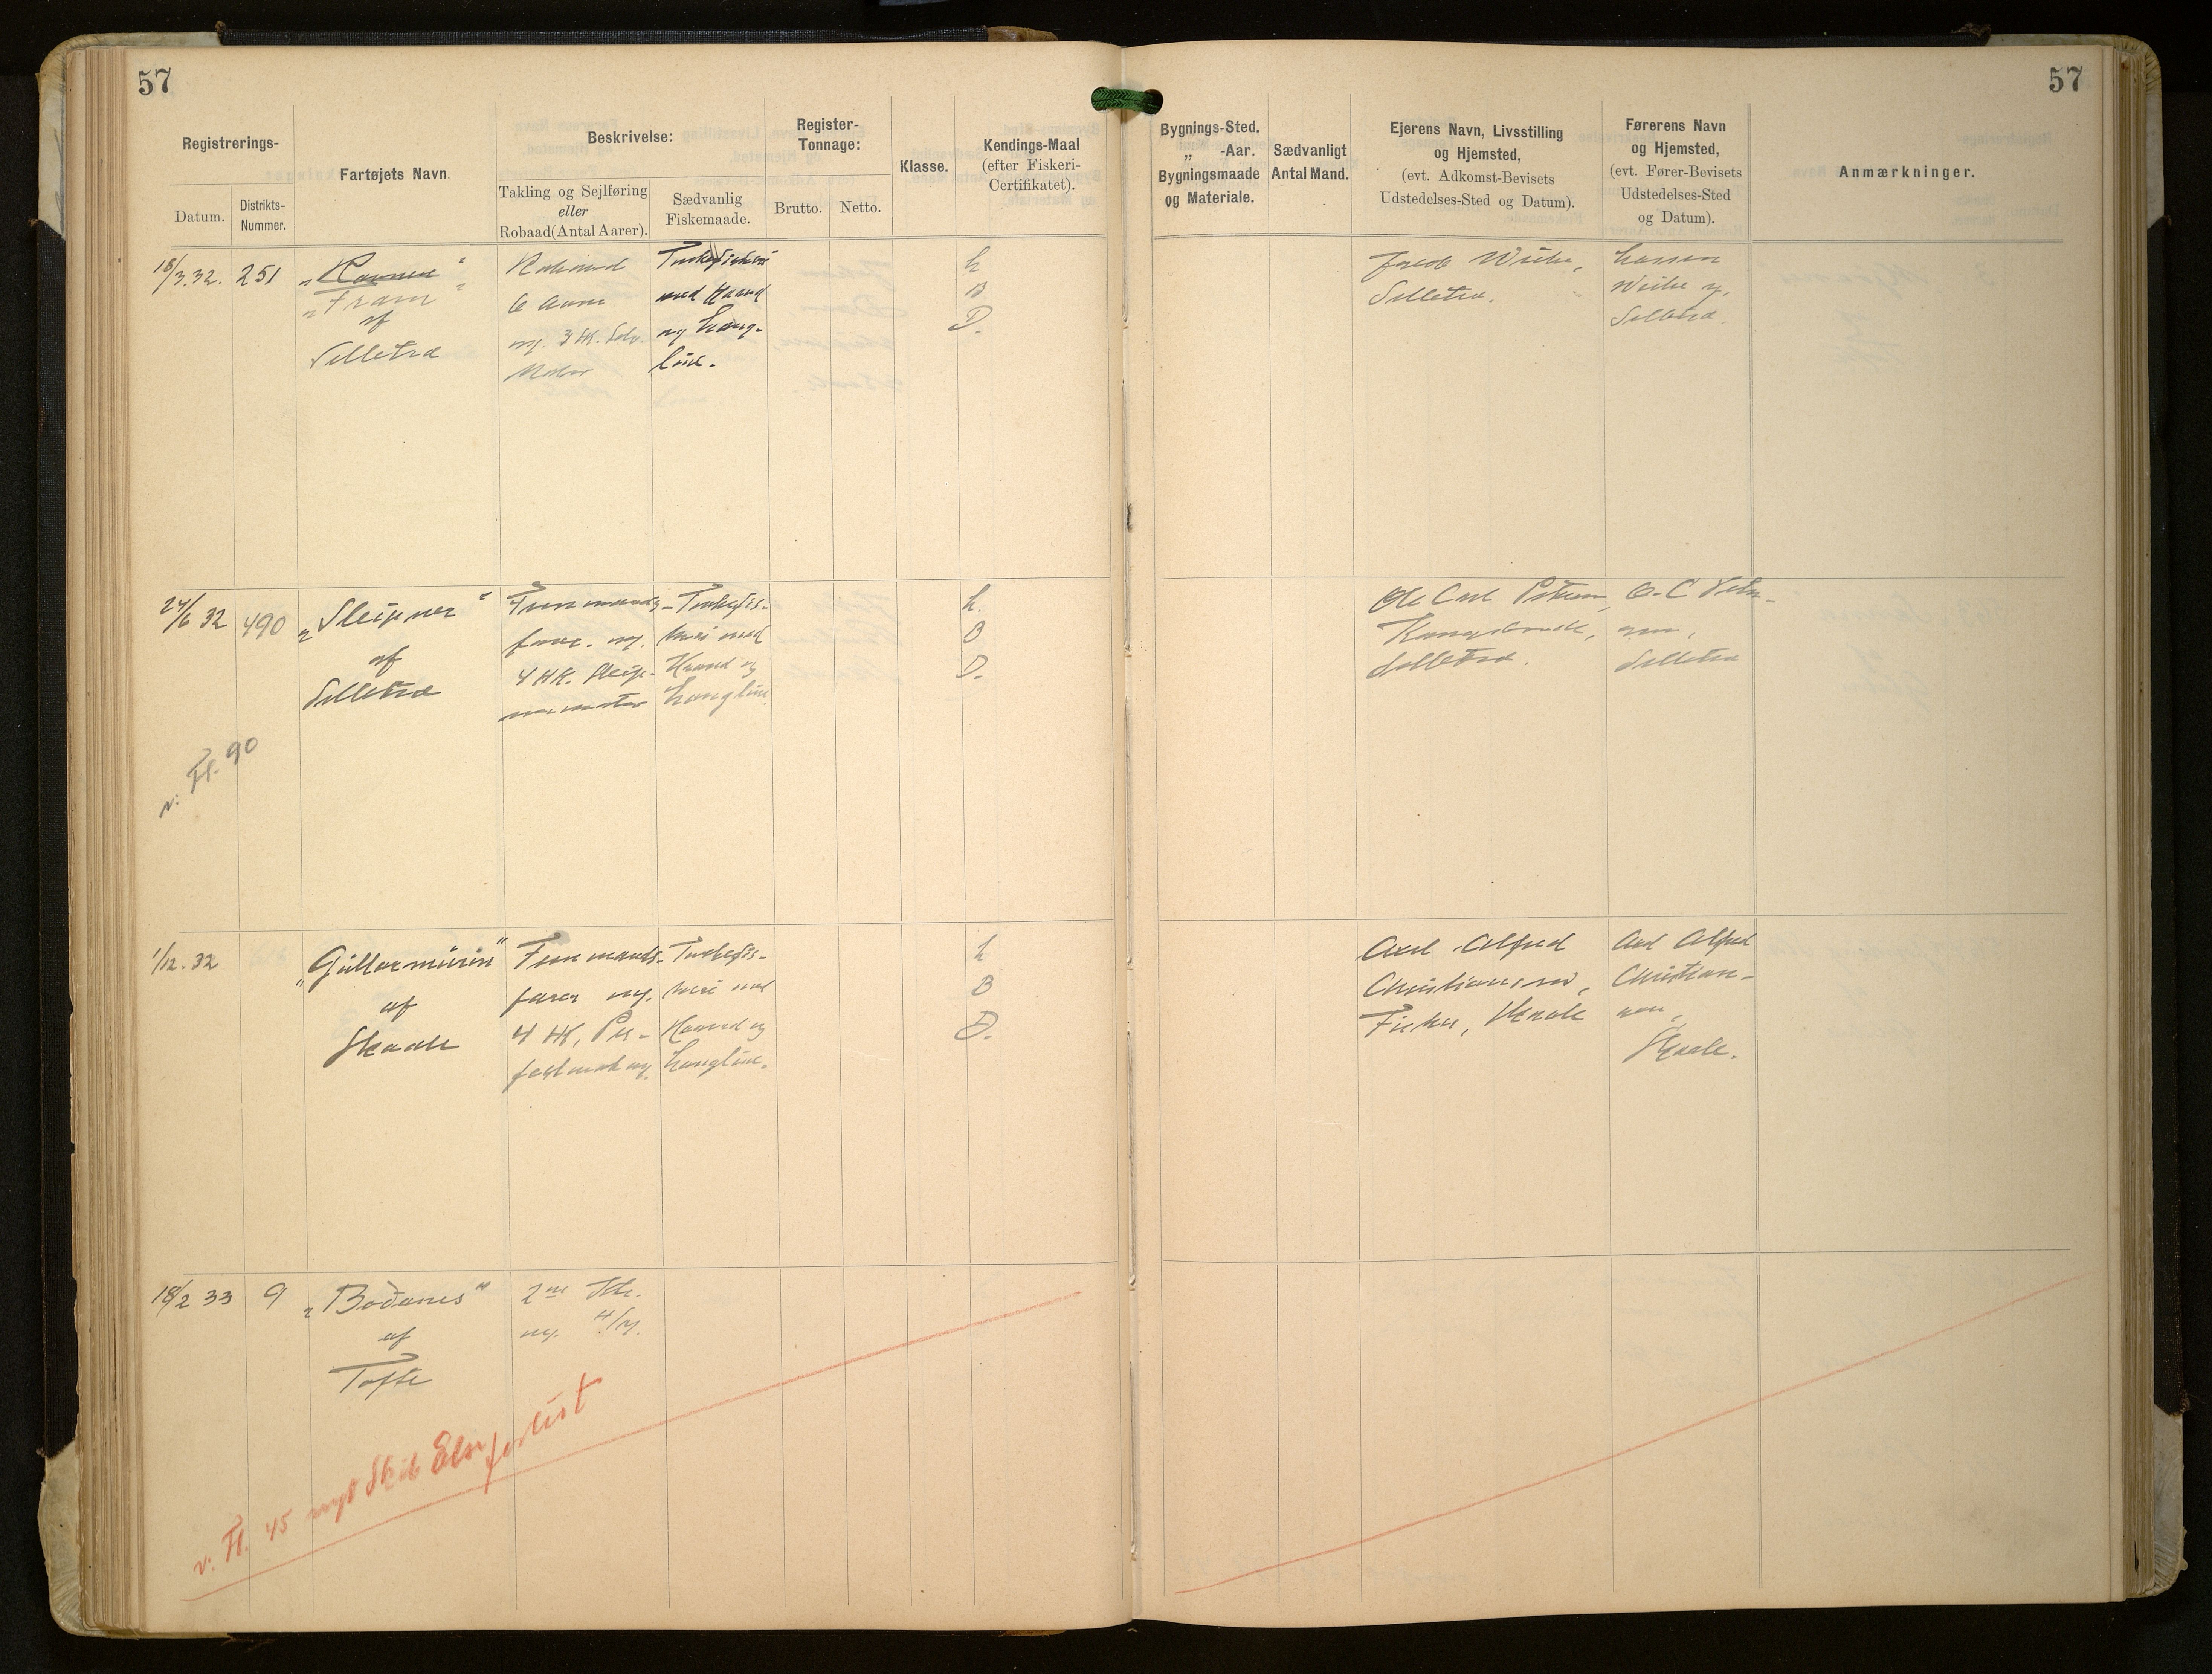 57
57
Registrerings-
Datum.
Distrikts-
Nummer.
Fartøjets Navn.
Beskrivelse:
Takling og Sejlføring
eller
Robaad (Antal Aarer).
Sædvanlig
Fiskemaade.
Register-
Tonnage:
Brutto.
Netto.
Klasse.
Kendings-Maal
(efter Fiskeri-
Certifikatet).
Bygnings-Sted.
„ -Aar.
Bygningsmaade
og Materiale.
Sædvanligt
Antal Mand.
Ejerens Navn, Livsstilling
og Hjemsted,
(evt. Adkomst-Bevisets
Udstedelses-Sted og Datum).
Førerens Navn
og Hjemsted,
(evt. Fører-Bevisets
Udstedelses-Sted
og Datum).
Anmærkninger.
18/3.32.
251
„Ravnen“
„Fram“
af
Selletræ
6 Aarer
og 3 HK.
Motor
Torskefiskeri
med Haand
og Lang-
line.
L
B
D.
Selletræ.
Selletræ.
24/6 32
490
„Sleipner“
af
Selletræ
Firemands-
farer. og.
4 HK. Sleip-
nermotor
Torskefis-
keri med
Haand og
Langline.
L.
B
D.
Ole Carl Petersen,
Selletræ.
O. C Peter-
sen,
Selletræ
v: Fl. 90
1/12. 32
„Gullormurin“
af
Skaale
Firemands-
farer og.
4 HK, Per-
fekt
Torskefis-
keri med
Haand og
Langline.
L
B
D.
Axel Alfred
Christiansen,
Fisker, Skaale
Axel Alfred
Christian-
sen,
Skaale.
18/2 33
9
„Bodanes“
af
Tofte
2 m
og
v: Fl. 45 nyt Skib forlist